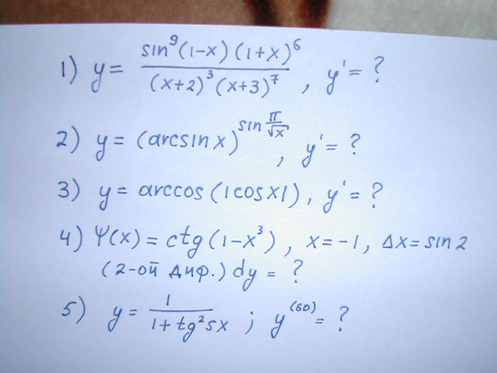 1) y = sin⁹(1-x)(1+x)⁶ / (x+2)³(x+3)⁷ , y' = ?
2) y = (arcsin x)^(sin π/√x) , y' = ?
3) y = arccos (|cosx|), y' = ?
4) Ψ(x) = ctg (1-x³) , x = -1, Δx = sin 2
(2-ой диф.) dy = ?
5) y = 1 / 1 + tg²5x ; y⁽⁶⁰⁾ = ?